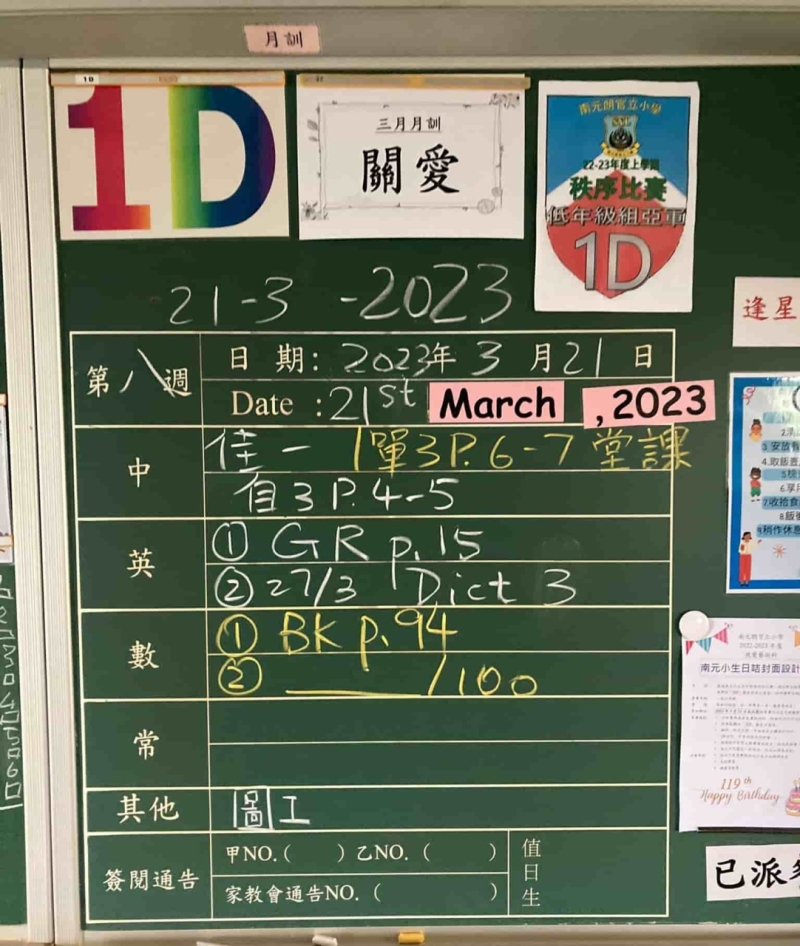 月訓
1D
三月月訓
關愛
南元朗官立小學
22-23年度上學期
秩序比賽
低年級組亞軍
1D
21-3-2023
第八週
日期: 2023年3月21日
Date :21st March ,2023
中
佳一 1單3P.6-7堂課
自3 P.4-5
英
① GR p.15
② 27/3 Dict 3
數
① BK p.94
② ______/100
常
其他
圖工
簽閱通告
甲NO.( ) 乙NO. ( )
家教會通告NO. ( )
值日生
逢星
3 安放
4.取飯
7收拾食
8.飯後
稍作休息
南元朗官立小學
2022-2023年度
南元小生日咭封面設計
119th
Happy Birthday
已派